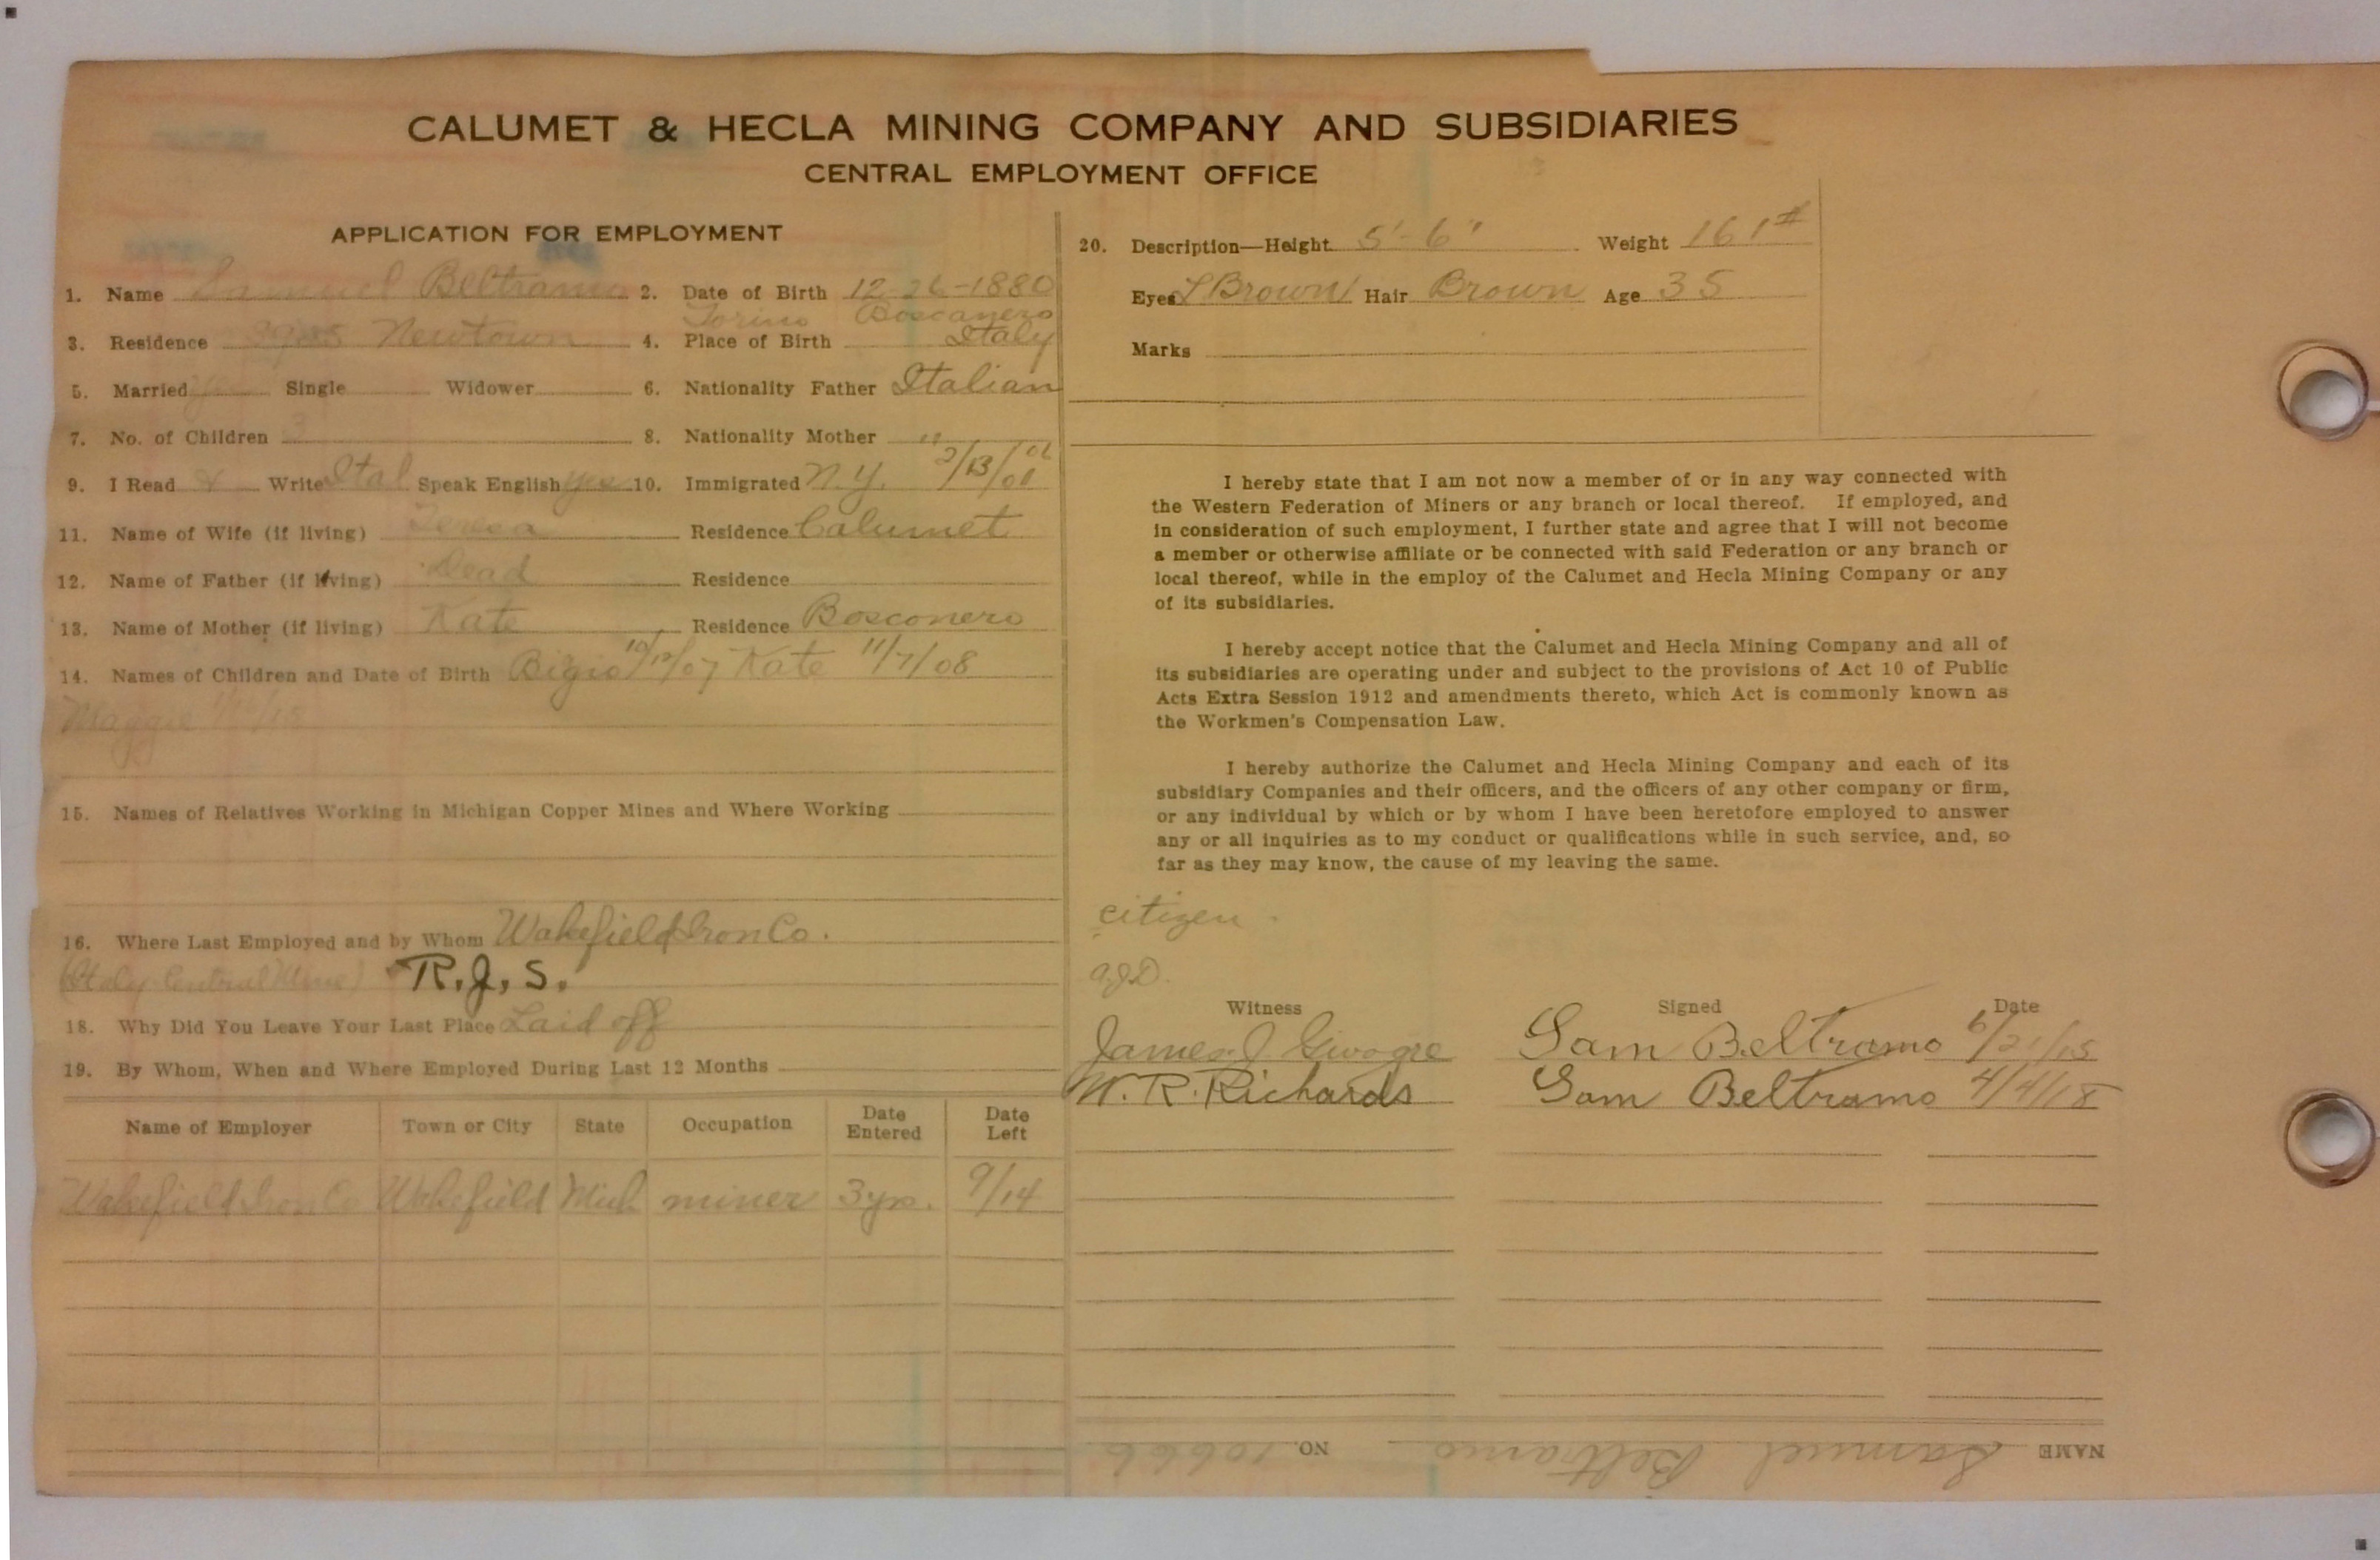 CALUMET & HECLA MINING COMPANY AND SUBSIDIARIES
CENTRAL EMPLOYMENT OFFICE
APPLICATION FOR EMPLOYMENT
1. Name Samuel Beltramo 2. Date of Birth 12-26-1880
Torino Boscanero
3. Residence Newtown 4. Place of Birth Italy
5. Married Yes Single Widower 6. Nationality Father Italian
7. No. of Children 3 8. Nationality Mother "
9. I Read & Write Ital Speak English yes 10. Immigrated N.Y. 2/13/01 06
11. Name of Wife (if living) Teresa Residence Calumet
12. Name of Father (if living) Dead Residence
13. Name of Mother (if living) Kate Residence Bosconero
14. Names of Children and Date of Birth Bigio 10/12/07 Kate 11/7/08
Maggie
15. Names of Relatives Working in Michigan Copper Mines and Where Working
16. Where Last Employed and by Whom Wakefield Iron Co.
R.J.S.
18. Why Did You Leave Your Last Place Laid off
19. By Whom, When and Where Employed During Last 12 Months
Name of Employer Town or City State Occupation Date Entered Date Left
Wakefield Iron Co Wakefield Mich miner 3 yrs. 9/14
20. Description—Height 5'-6" Weight 161#
Eyes L Brown Hair Brown Age 35
Marks
I hereby state that I am not now a member of or in any way connected with
the Western Federation of Miners or any branch or local thereof. If employed, and
in consideration of such employment, I further state and agree that I will not become
a member or otherwise affiliate or be connected with said Federation or any branch or
local thereof, while in the employ of the Calumet and Hecla Mining Company or any
of its subsidiaries.
I hereby accept notice that the Calumet and Hecla Mining Company and all of
its subsidiaries are operating under and subject to the provisions of Act 10 of Public
Acts Extra Session 1912 and amendments thereto, which Act is commonly known as
the Workmen's Compensation Law.
I hereby authorize the Calumet and Hecla Mining Company and each of its
subsidiary Companies and their officers, and the officers of any other company or firm,
or any individual by which or by whom I have been heretofore employed to answer
any or all inquiries as to my conduct or qualifications while in such service, and, so
far as they may know, the cause of my leaving the same.
citizen
Witness Signed Date
James J Sam Beltramo 6/21/15
W. R. Richards Sam Beltramo 4/4/18
NAME Samuel Beltramo NO. 10666